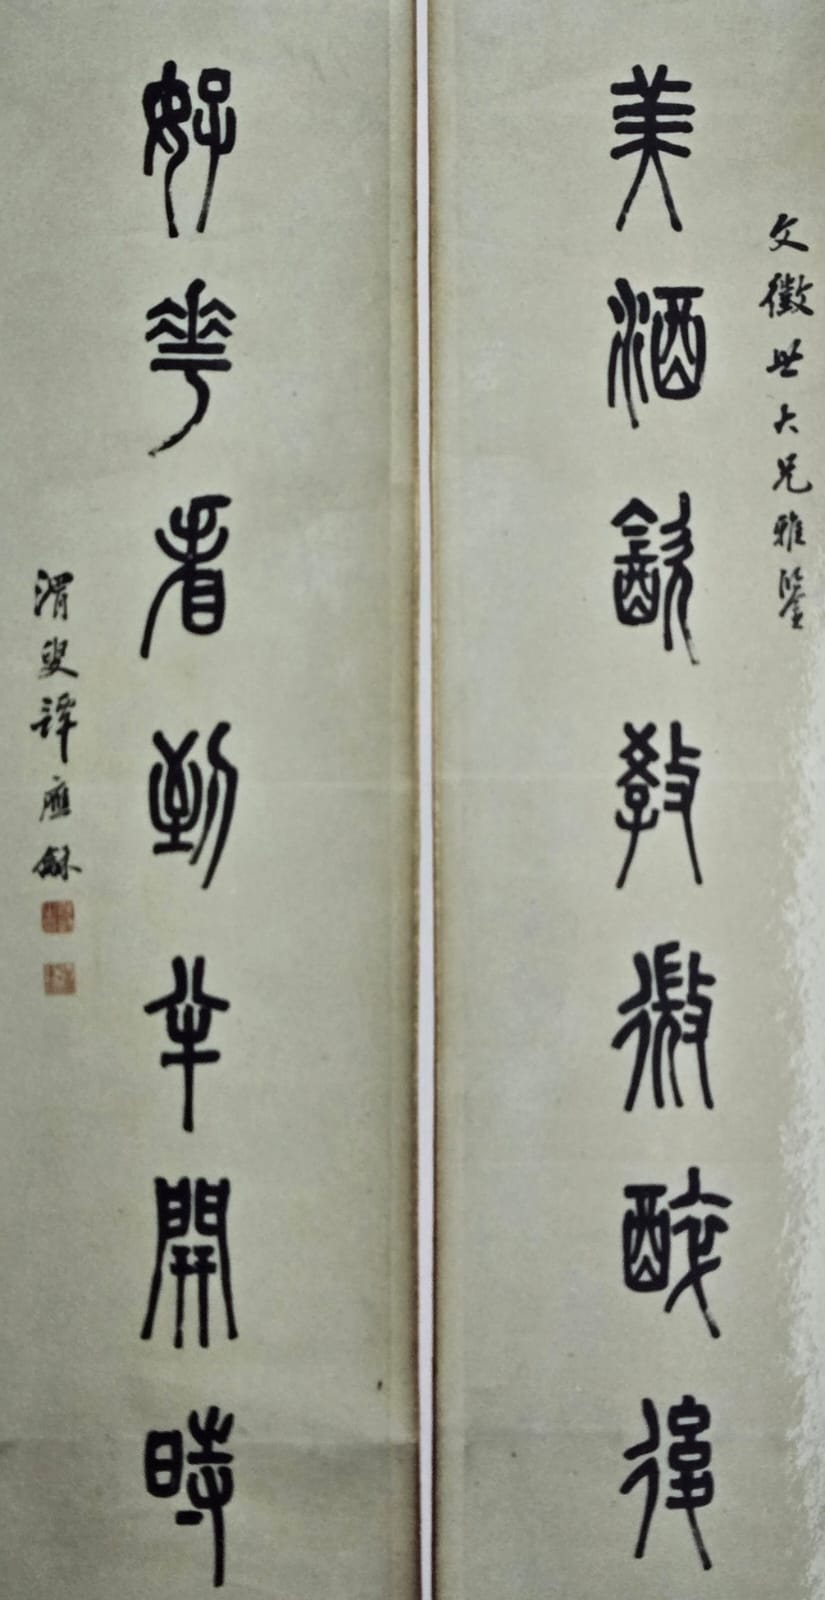 文徵世大兄雅鑒
美酒飲教微醉後
好花看到半開時
渭叟應龢